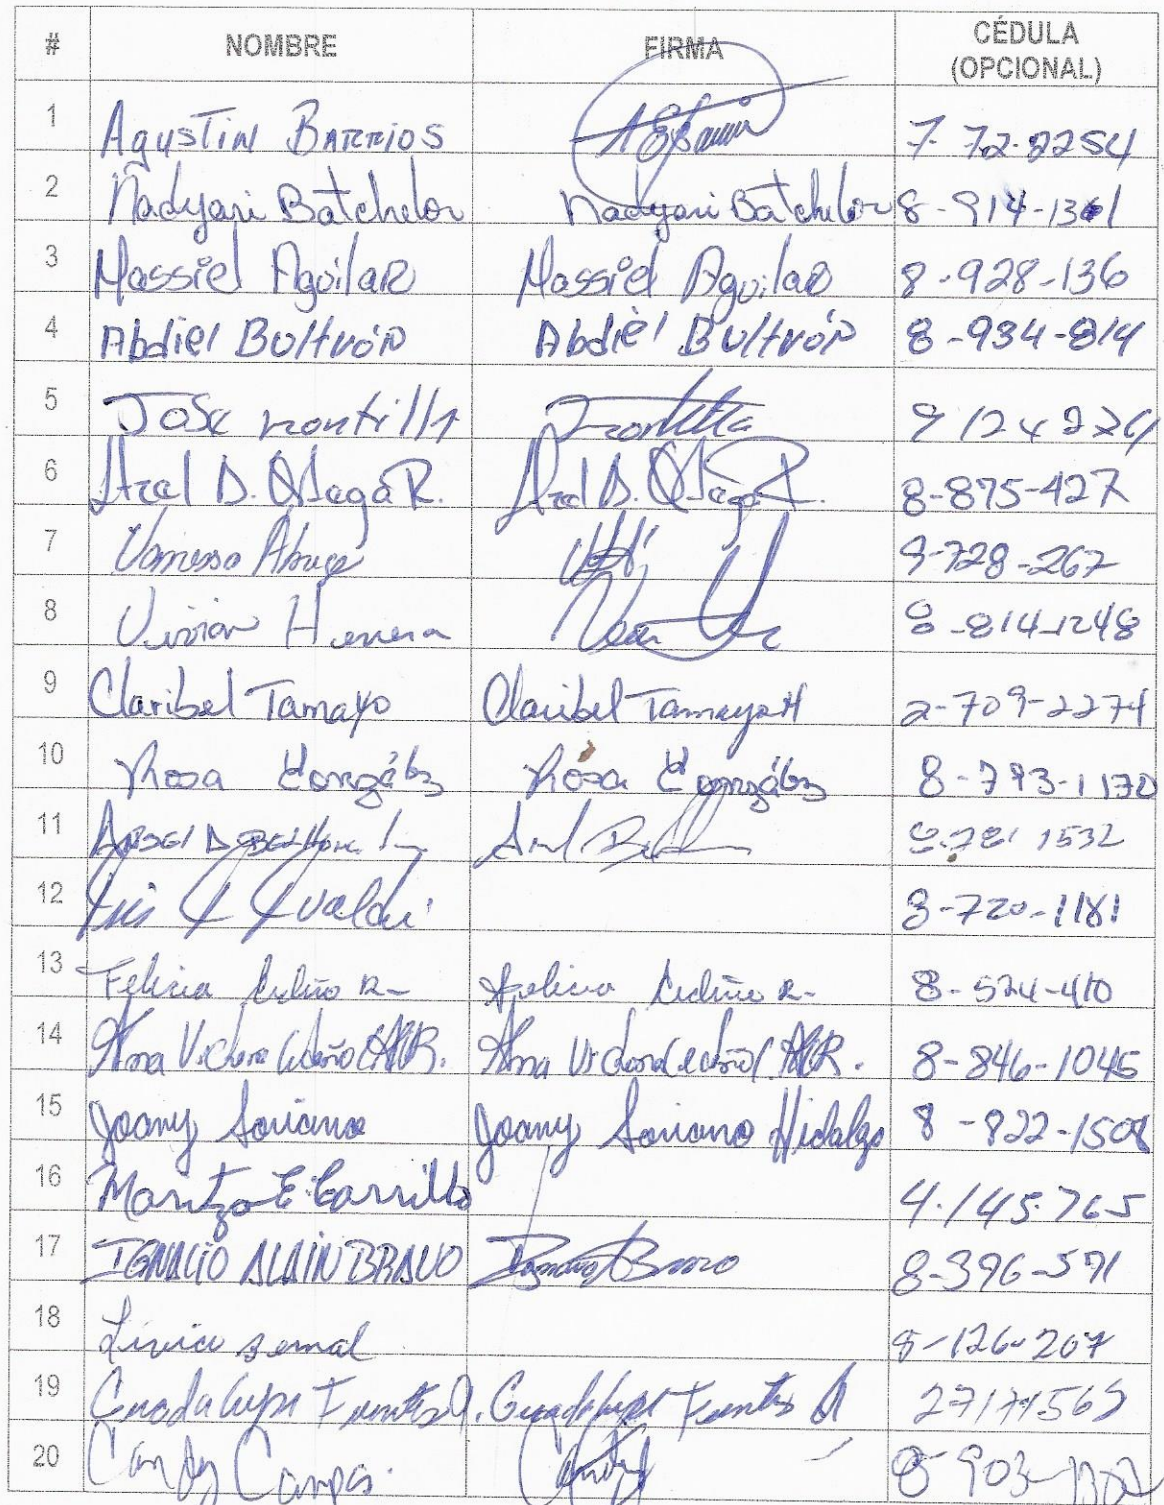 # NOMBRE FIRMA CÉDULA (OPCIONAL)
1 Agustin Barrios 7-72-2254
2 Nadyari Batchelor Nadyari Batchelor 8-914-1361
3 Massiel Aguilar Massiel Aguilar 8-928-136
4 Abdiel Bultrón Abdiel Bultrón 8-934-814
5 Jose Montilla Montilla
6 Azael D. Ortega R. Azael D. Ortega R. 8-875-427
7 Vanessa 9-728-267
8 Vivian Herrera 8-814-1248
9 Claribel Tamayo Claribel Tamayo H 2-709-2274
10 Rosa González Rosa González 8-793-1170
11 8-781 1532
12 8-720-1181
13 Felicia Cedeño R- Felicia Cedeño R- 8-524-410
14 Ana Victoria Cedeño Ana Victoria Cedeño 8-846-1045
15 Joany Soriano Joany Soriano Hidalgo 8-822-1508
16 Maritza E. Carrillo 4-145-765
17 IGNACIO ALAIN BRAVO Ignacio Bravo 8-396-591
18 Livia Bernal 8-126-207
19 Guadalupe Fuentes Guadalupe Fuentes
20 Candy Campos Candy